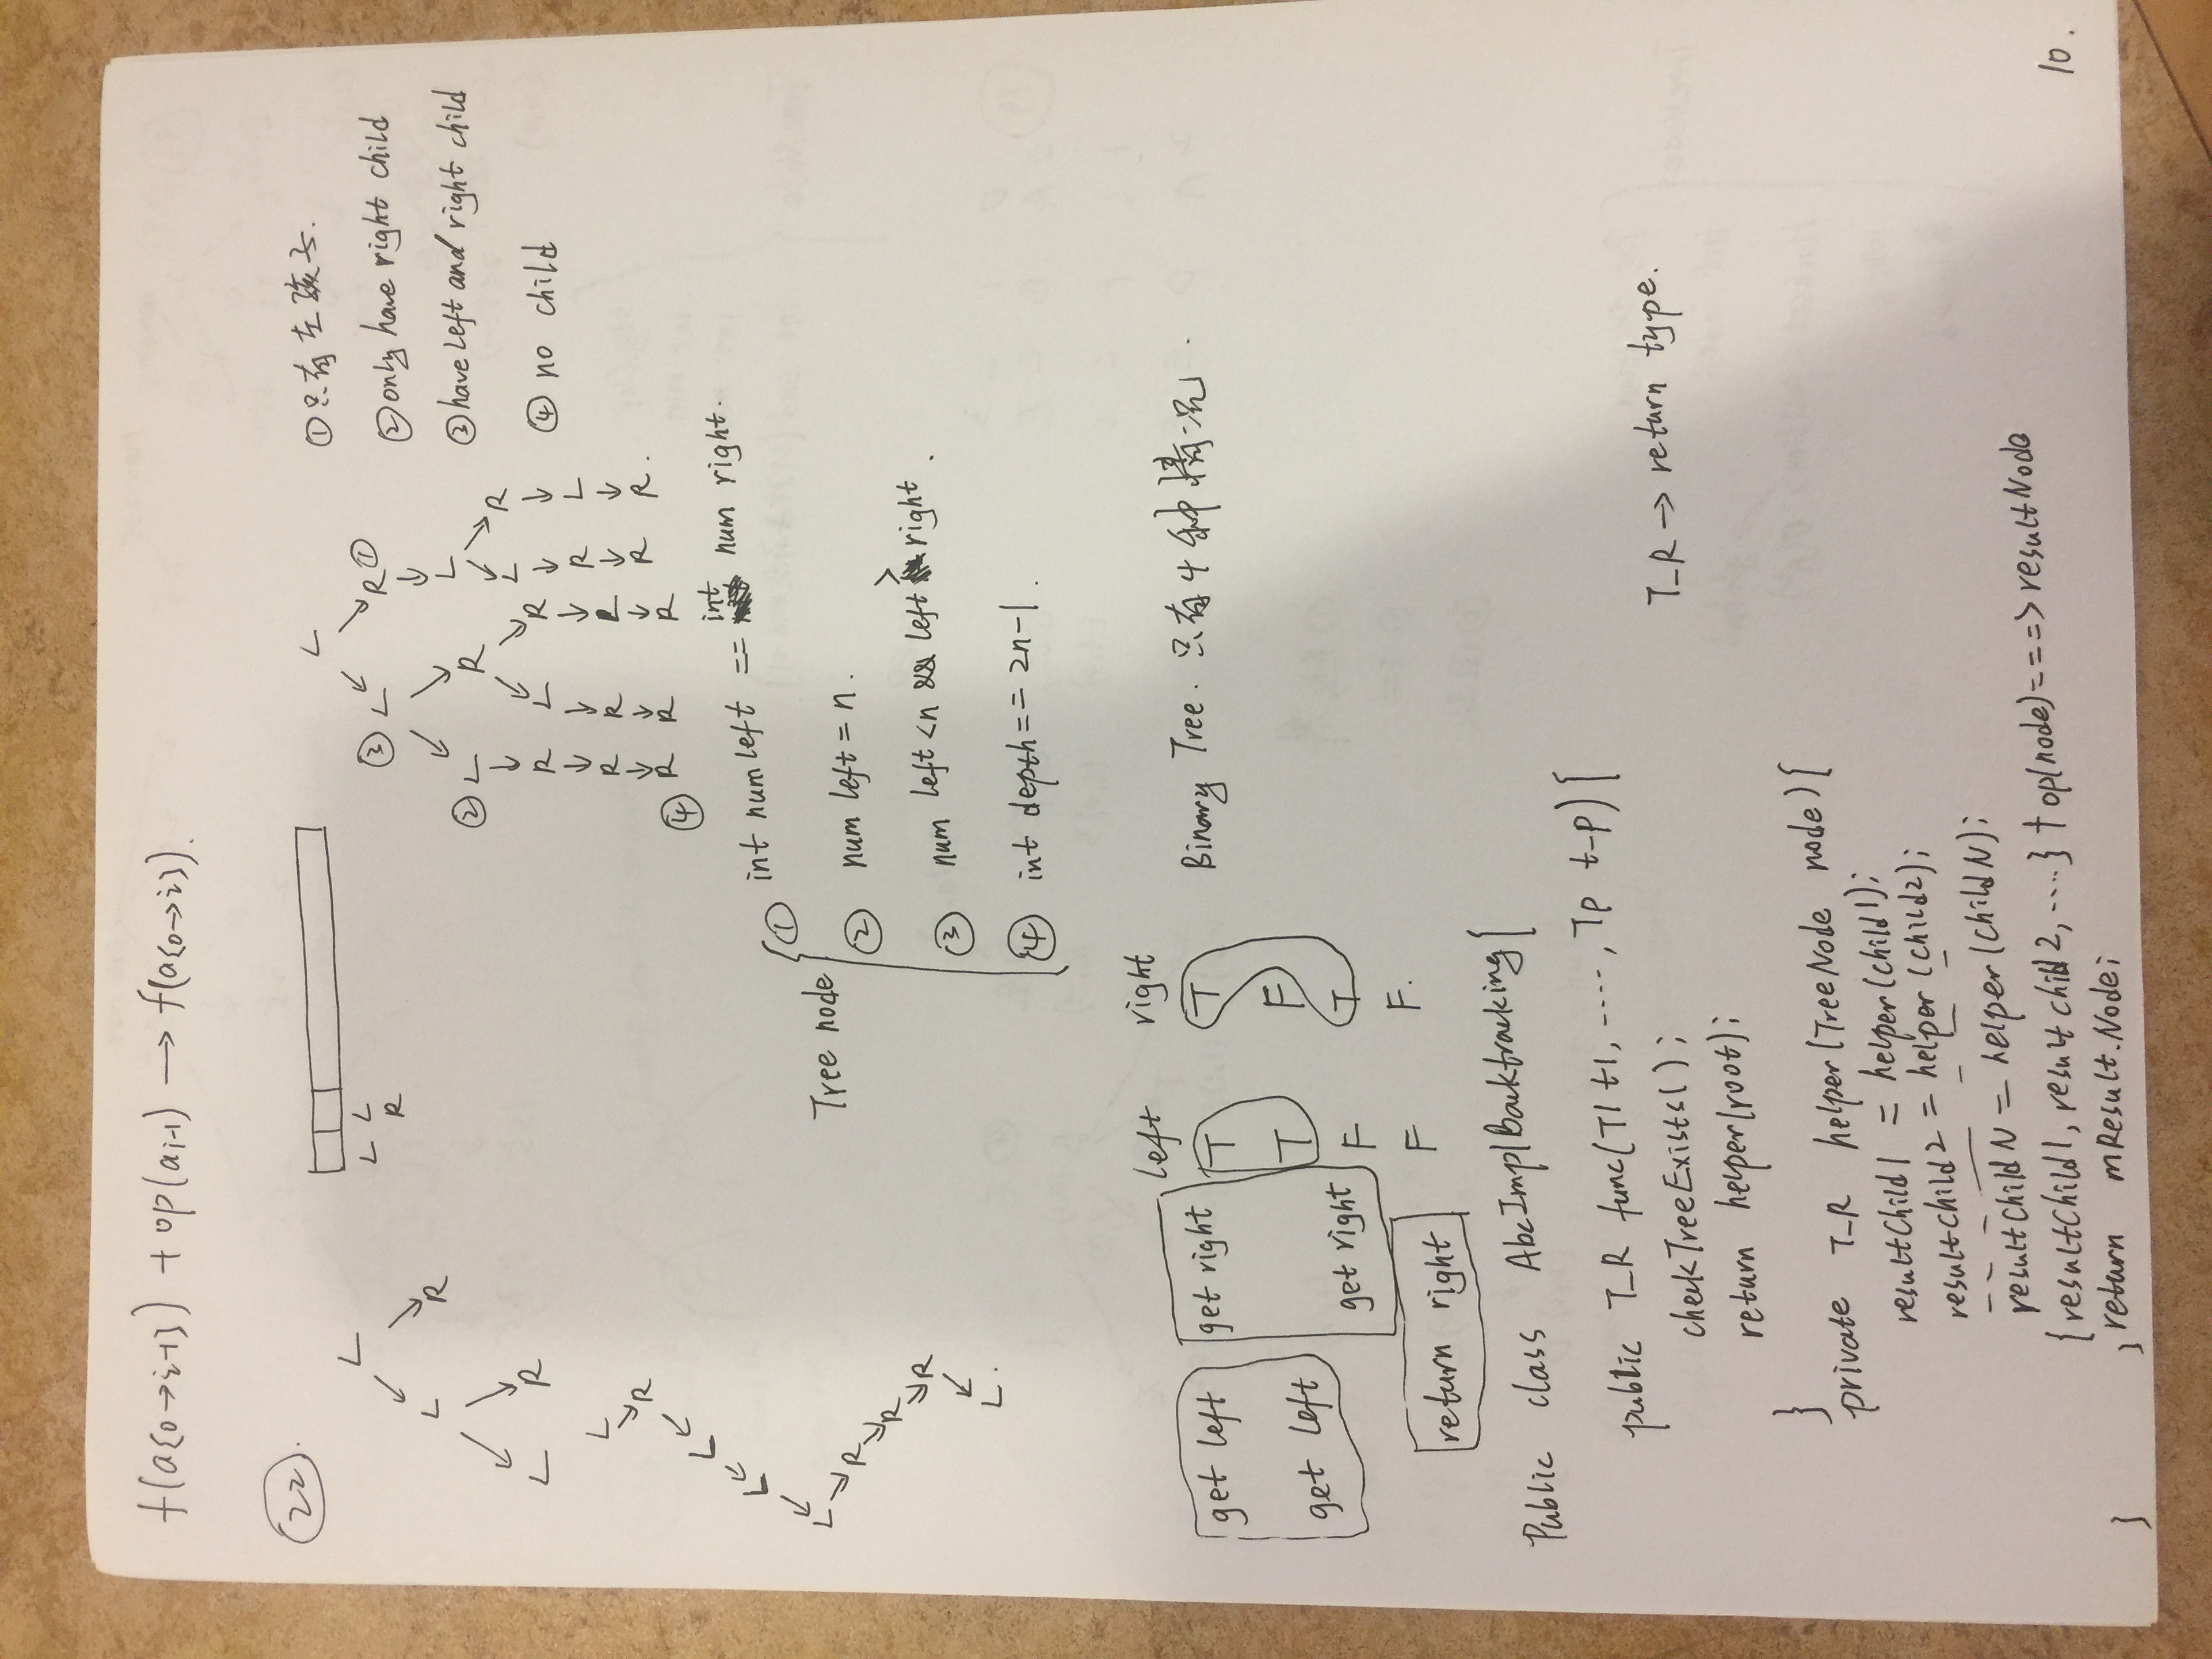 f(a{0→i-1}) + op(ai-1) → f(a{0→i}).
22.
L
L R
L R
L
R
L
L
L
R
R
R
L.
L L
R
L
③ L R ①
② L R L
L R
R L R
R L
R R L R
R R.
④ R R R
①只有左孩子.
②only have right child
③have left and right child
④ no child
Tree node
① int num left == int num right.
② num left = n.
③ num left < n && left > right.
④ int depth == 2n-1.
left right
get left get right T T
get left T F
get right F T
return right F F.
Binary Tree. 只有4种情况.
Public class AbcImplBacktracking{
public T_R func(T1 t1, ----, Tp t_p){
checkTreeExists();
return helper(root);
}
T_R → return type.
private T_R helper(TreeNode node){
resultChild1 = helper(child1);
resultchild2 = helper(child2);
resultchildN = helper(childN);
{resultChild1, result child2, ....} + op(node)===> resultNode
return mResult.Node;
}
}
10.